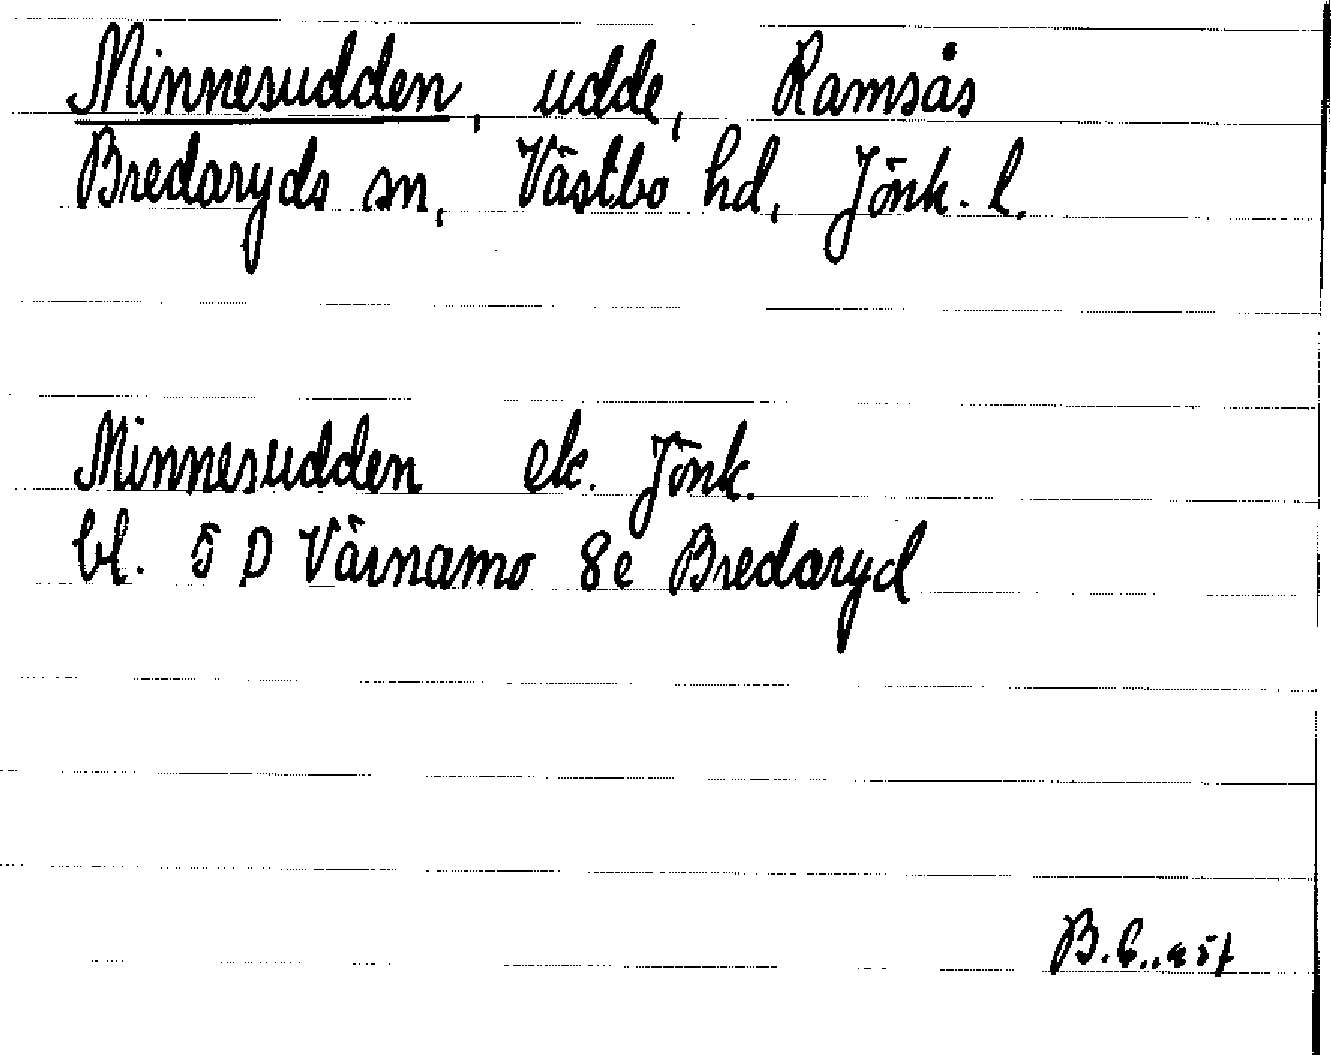 Minnesudden, udde, Ramsås
Bredaryds sn, Västbo hd, Jönk. l.
Minnesudden ek. Jönk.
bl. 5 D Värnamo 8e Bredaryd